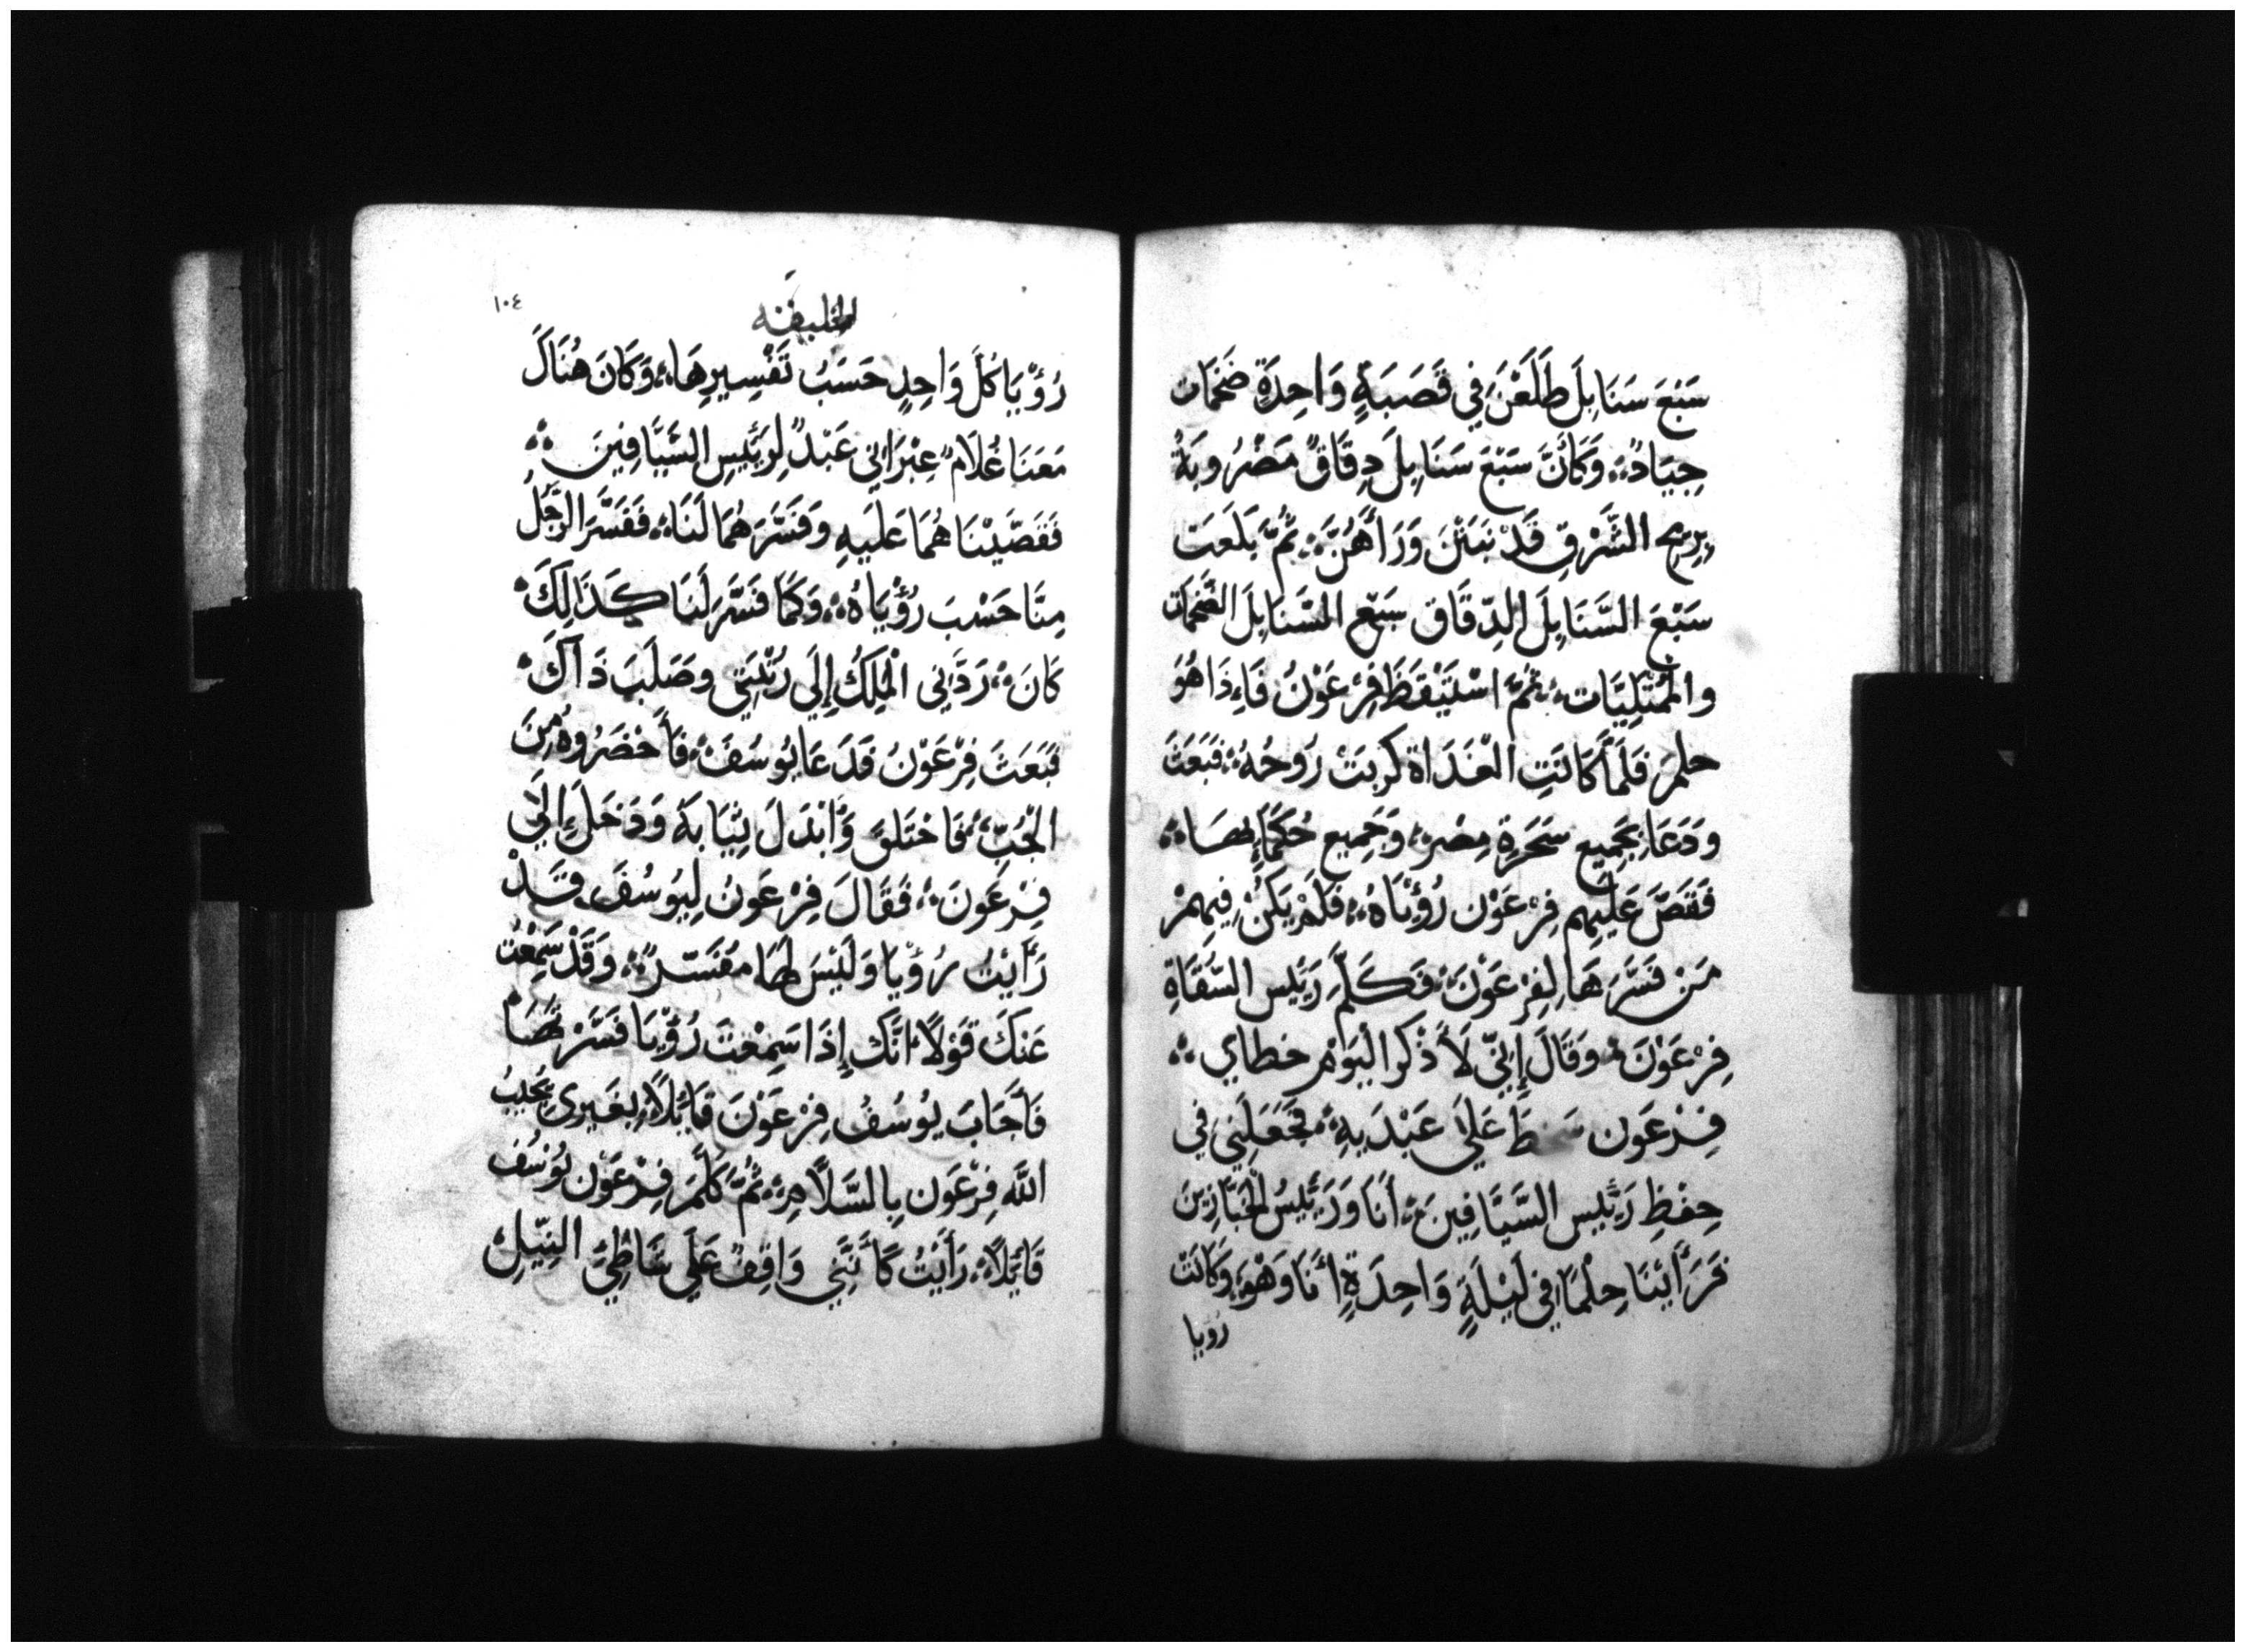 سَبْعَ سَنَابِلَ طَلَعْنَ فِي قَصَبَةٍ وَاحِدَةٍ ضَخْمَات
جِيَادٌ؞ وَكَأَنَّ سَبْعَ سَنَابِلَ دِقَاقٌ مَضْرُوبَةٌ
بِرِيحِ الشَّرْقِ قَدْ نَبَتْنَ وَرَأَهُنَّ؞ ثُمَّ بَلَعَت
سَبْعَ السَّنَابِلَ الدِّقَاق سَبْع السَّنَابِلَ الضَّخْمَات
والمُمْتَلِيَّات؞ ثُمَّ اسْتَيْقَظَ فِرْعَوْنُ فَإِذَا هُوَ
حلم فَلَمَّا كَانَتِ الْغَدَاة كربَتْ رُوحُهُ؞ فَبَعَثَ
وَدَعَا بِجَمِيع سَحَرَةِ مِصْر؞ وَجَمِيع حُكَمَائِهَا؞
فَقَصَّ عَلَيهِم فِرْعَوْن رُؤْيَاهُ؞ فَلَمْ يَكُنْ فِيهِمْ
مَنْ فَسَّرَهَا لِفِرْعَوْنَ؞ فَكَلَّمَ رَئيس السُّقَاةِ
فِرْعَوْنَ؞ وَقَالَ إِنِّي لَأَذْكر اليَوَمْ خطاي؞
فِرْعَون سَخطَ عَلَى عَبْدَيهِ؞ فَجَعَلَنِي فِي
حِفْظِ رَئيس السَّيَّافِينَ؞ أَنَا وَرَئيسُ الخَبَّازِينَ
فَرَأَيْنَا حِلْمًا فِي لَيْلَةٍ وَاحِدَةٍ أَنَا وَهْوَ؞ وَكَانَتْ
رويا
١٠٤
الخليقه
رُؤْيَا كُلَّ وَاحِدٍ حَسَبُ تَفْسِيرِهَا؞ وَكَانَ هُنَاكَ
مَعَنَا غُلَامٌ عِبْرَانِي عَبْدٌ لِرَئيسِ السَّيَّافِينَ؞
فَقَصَّيْنَاهُمَا عَلَيهِ وفَسَّرَهُمَا لَنَا؞ فَفَسَّرَ الرَّجُلُ
مِنَّا حَسْبَ رُؤْيَاهُ؞ وَكَمَا فَسَّرَ لَنَا كَذَالِكَ
كَانَ؞ رَدَّنِي الْمَلِكُ إِلَي رُتْبَتِي وصَلَبَ ذَاكَ
فَبَعَثَ فِرْعَوْنُ فَدَعَا يُوسُفَ؞ فَأَحْضَرُوهُ مِنَ
الْجُبِّ؞ فَاحْتَلَقَ وَأَبْدَلَ ثِيَابَهُ وَدَخَلَ إِلَي
فِرْعَونَ؞ فَقَالَ فِرْعَونُ لِيُوسُفَ قَدْ
رَأَيْتُ رُؤْيَا وَلَيْسَ لهَا مفَسّرٌ؞ وَقَدْ سَمِعْتُ
عَنكَ قَوْلًا انَّك إِذَا سَمِعْتَ رُؤْيَا فَسَّرْتَهَا
فَأَجَابَ يُوسُفُ فِرْعَوْنَ قَائِلًا؞ بِغَيرِي يُجِيبُ
اللَّه فِرْعَون بِالسَّلَامِ؞ ثُمَّ كَلَّمَ فِرْعَوْن يُوسُف
قَائلًا؞ رَأَيْتُ كَأَنَّنِي وَاقِفٌ عَلَي شَاطِئِ النِّيلِ